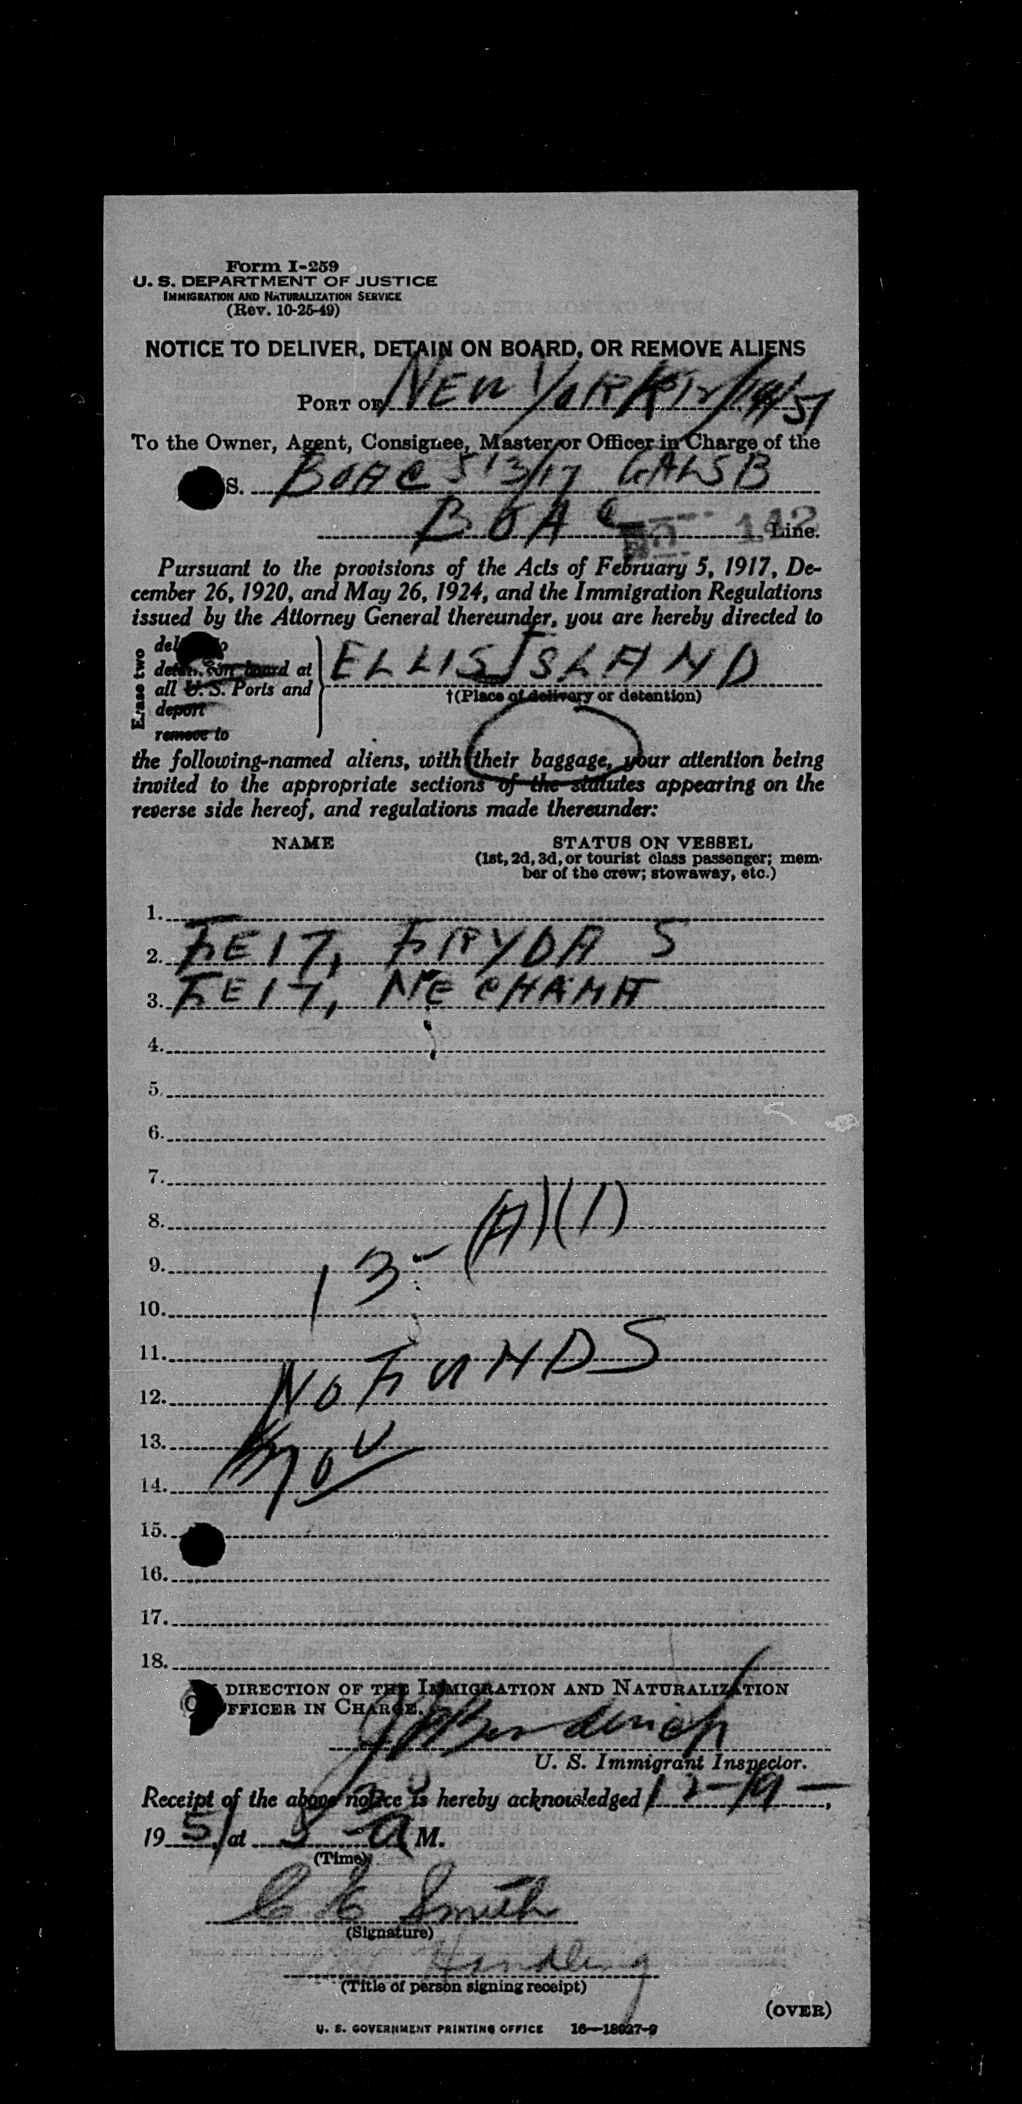 Form I-259
U. S. DEPARTMENT OF JUSTICE
IMMIGRATION AND NATURALIZATION SERVICE
(Rev. 10-25-49)
NOTICE TO DELIVER, DETAIN ON BOARD, OR REMOVE ALIENS
PORT OF NEW YORK 12/19/51
To the Owner, Agent, Consignee, Master or Officer in Charge of the
S. BOAC 513/17 GALSB
BOAC 142 Line.
Pursuant to the provisions of the Acts of February 5, 1917, De-
cember 26, 1920, and May 26, 1924, and the Immigration Regulations
issued by the Attorney General thereunder, you are hereby directed to
Erase two
detain on board at
all U. S. Ports and
deport
remove to
ELLIS ISLAND
†(Place of delivery or detention)
the following-named aliens, with their baggage, your attention being
invited to the appropriate sections of the statutes appearing on the
reverse side hereof, and regulations made thereunder:
NAME STATUS ON VESSEL
(1st, 2d, 3d, or tourist class passenger; mem-
ber of the crew; stowaway, etc.)
1.
2. FEIT, FRYDA S
3. FEIT, NECHAMA
4.
5.
6.
7.
8. (A)(1)
9. 13-
10.
11.
12. NO FUNDS
13.
14.
15.
16.
17.
18.
DIRECTION OF THE IMMIGRATION AND NATURALIZATION
OFFICER IN CHARGE.
U. S. Immigrant Inspector.
Receipt of the above notice is hereby acknowledged 12-19-,
1951, at A M.
(Time)
C E Smith
(Signature)
Handling
(Title of person signing receipt)
(OVER)
U. S. GOVERNMENT PRINTING OFFICE 16—18027-9